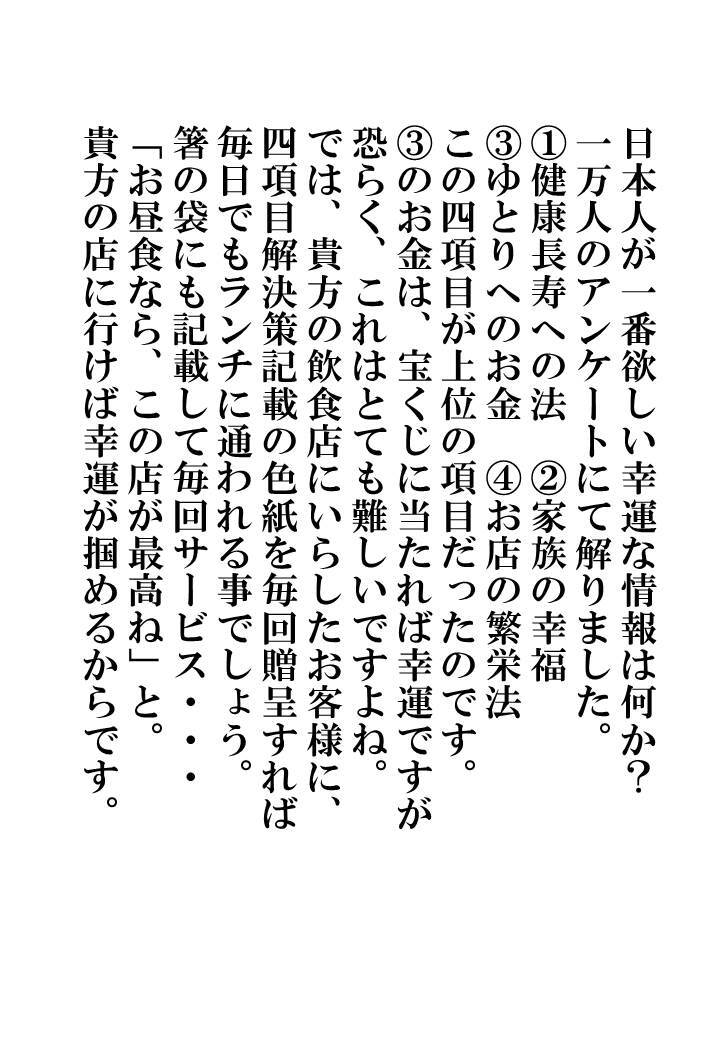 日本人が一番欲しい幸運な情報は何か？
一万人のアンケートにて解りました。
①健康長寿への法　②家族の幸福
③ゆとりへのお金　④お店の繁栄法
この四項目が上位の項目だったのです。
③のお金は、宝くじに当たれば幸運ですが
恐らく、これはとても難しいですよね。
では、貴方の飲食店にいらしたお客様に、
四項目解決策記載の色紙を毎回贈呈すれば
毎日でもランチに通われる事でしょう。
箸の袋にも記載して毎回サービス・・・
「お昼食なら、この店が最高ね」と。
貴方の店に行けば幸運が掴めるからです。